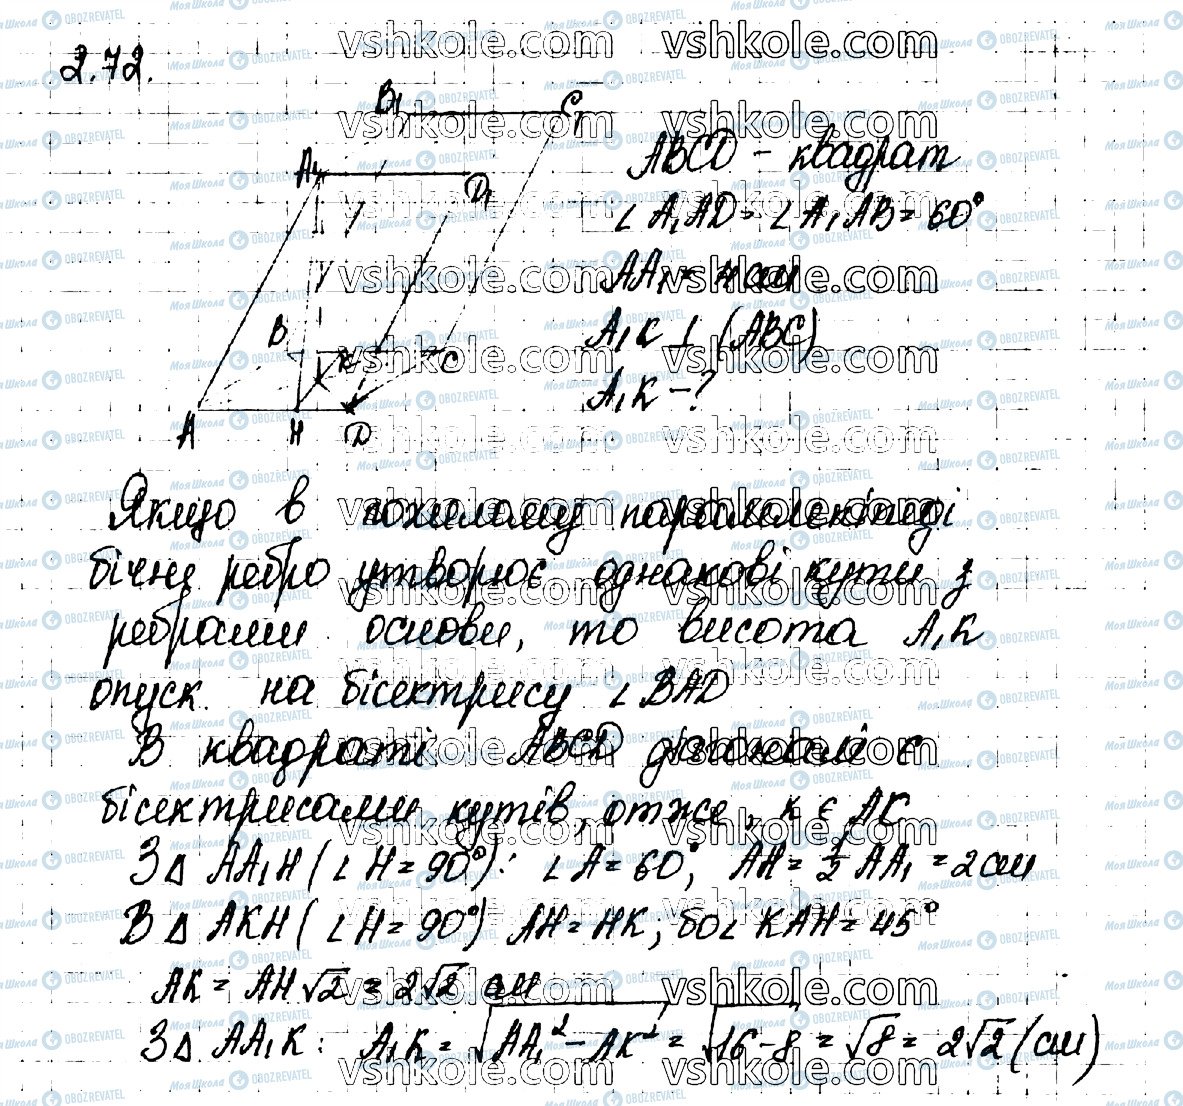 2.72.
B₁ C₁
A₁ D₁
B K C
A H D
ABCD - квадрат
∠A₁AD = ∠A₁AB = 60°
AA₁ = 4 см
A₁K ⊥ (ABC)
A₁K - ?
Якщо в похилому паралелепіпеді
бічне ребро утворює однакові кути з
ребрами основи, то висота A₁K
опуск. на бісектрису ∠BAD
В квадраті ABCD діагоналі є
бісектрисами кутів, отже, K є AC
З Δ AA₁H (∠H = 90°): ∠A = 60°, AH = ½ AA₁ = 2 см
В Δ AKH (∠H = 90°) AH = HK, бо ∠KAH = 45°
AK = AH√2 = 2√2 см
З Δ AA₁K: A₁K = √(AA₁² - AK²) = √(16 - 8) = √8 = 2√2 (см)
vshkole.com
Моя Школа OBOZREVATEL